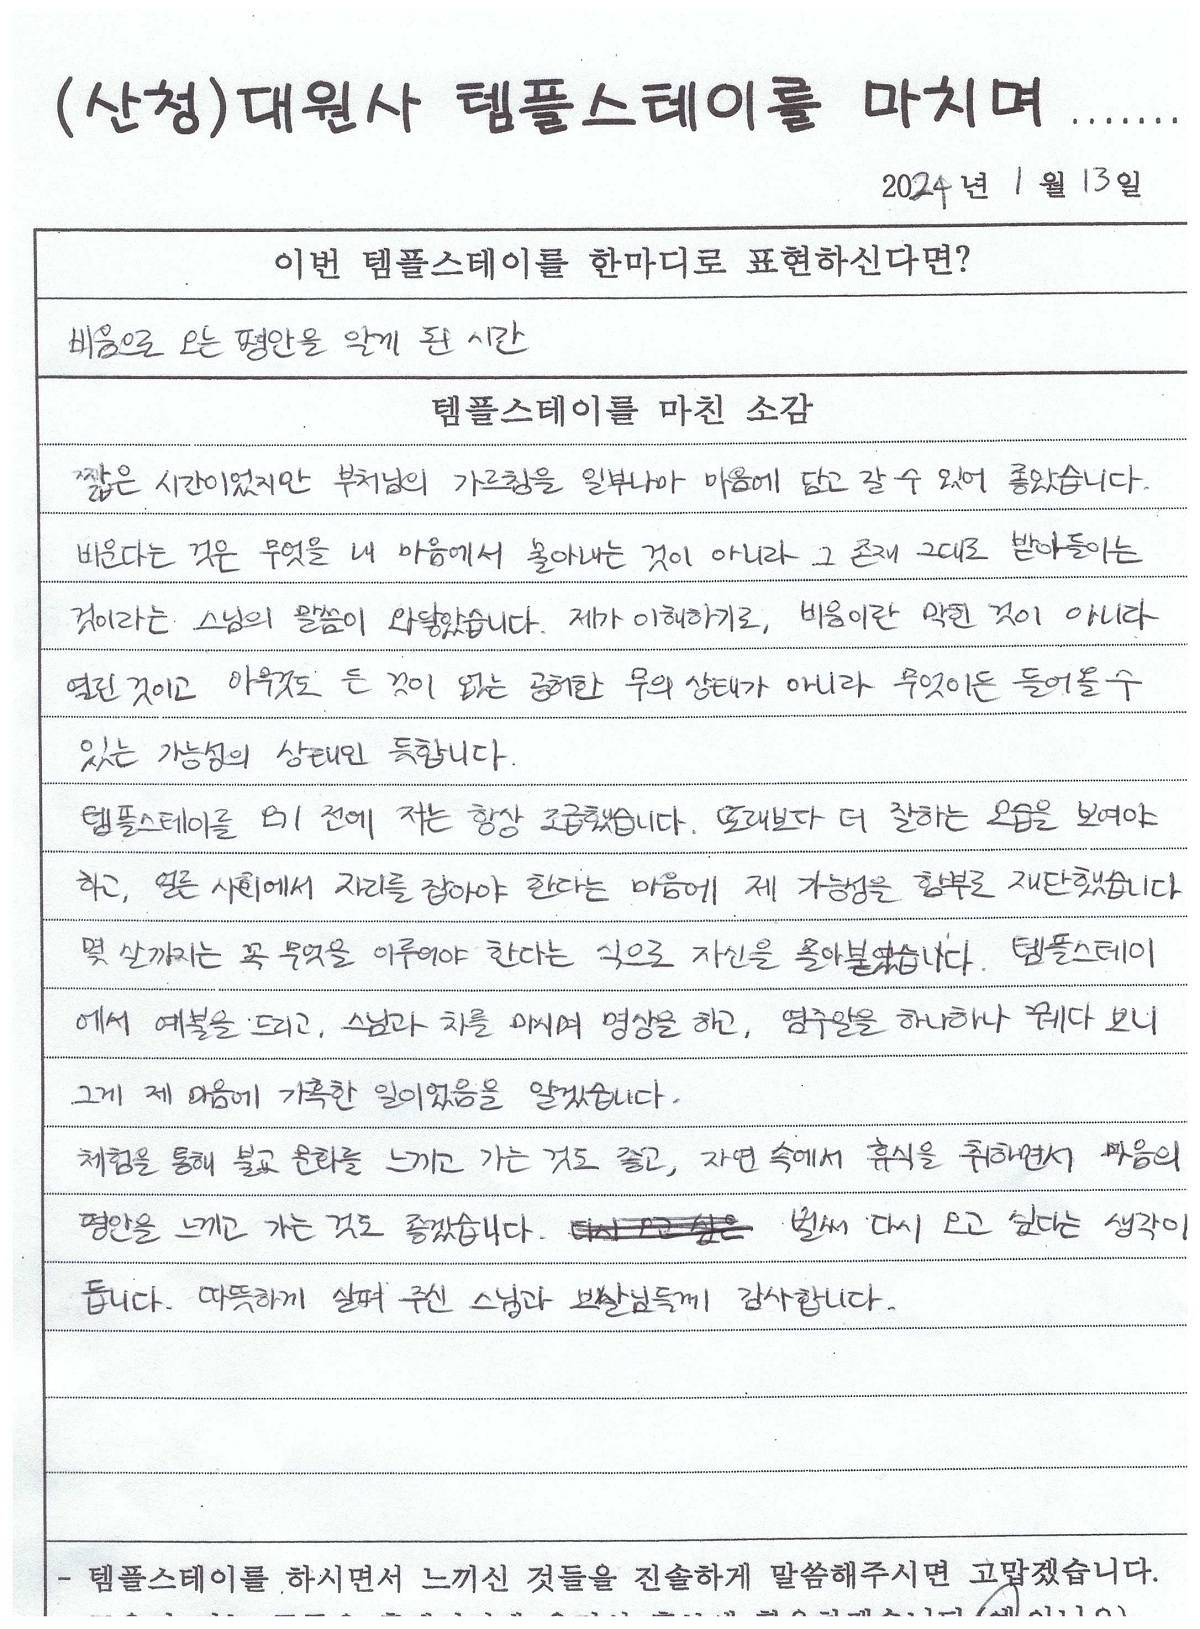 (산청)대원사 템플스테이를 마치며 .......
2024년 1월 13일
이번 템플스테이를 한마디로 표현하신다면?
비움으로 오는 평안을 알게 된 시간
템플스테이를 마친 소감
짧은 시간이었지만 부처님의 가르침을 일부나마 마음에 담고 갈 수 있어 좋았습니다.
비운다는 것은 무엇을 내 마음에서 몰아내는 것이 아니라 그 존재 그대로 받아들이는
것이라는 스님의 말씀이 와닿았습니다. 제가 이해하기로, 비움이란 막힌 것이 아니라
열린 것이고 아무것도 든 것이 없는 공허한 무의 상태가 아니라 무엇이든 들어올 수
있는 가능성의 상태인 듯합니다.
템플스테이를 오기 전에 저는 항상 조급했습니다. 또래보다 더 잘하는 모습을 보여야
하고, 얼른 사회에서 자리를 잡아야 한다는 마음에 제 가능성을 함부로 재단했습니다
몇 살까지는 꼭 무엇을 이루어야 한다는 식으로 자신을 몰아붙였습니다. 템플스테이
에서 예불을 드리고, 스님과 차를 마시며 명상을 하고, 염주알을 하나하나 꿰다 보니
그게 제 마음에 가혹한 일이었음을 알겠습니다.
체험을 통해 불교 문화를 느끼고 가는 것도 좋고, 자연 속에서 휴식을 취하면서 마음의
평안을 느끼고 가는 것도 좋겠습니다. 다시 오고 싶은 벌써 다시 오고 싶다는 생각이
듭니다. 따뜻하게 살펴 주신 스님과 보살님들께 감사합니다.
- 템플스테이를 하시면서 느끼신 것들을 진솔하게 말씀해주시면 고맙겠습니다.